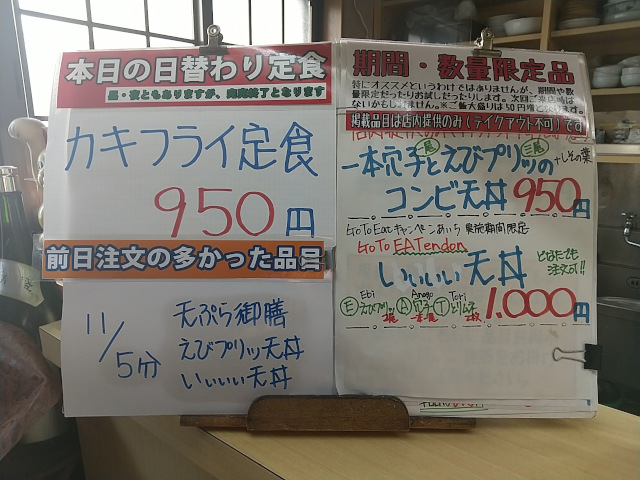 本日の日替わり定食
昼・夜ともありますが、完売終了となります
カキフライ定食
950円
前日注文の多かった品目
11/5分
天ぷら御膳
えびプリッ天丼
いぃぃぃ天丼
期間・数量限定品
特にオススメというわけではありませんが、期間や数
量限定だったりお試しだったりします。次回ご来店時は
ないかもしれません。※ご飯大盛りは50円増
掲載品目は店内提供のみ(テイクアウト不可)です
一本穴子とえびプリッの
+しその葉
コンビ天丼 950円
GoToEatキャンペーンあいち 実施期間限定
GoTo EATendon
いぃぃぃ天丼
どなたでも
注文可!!
Ebi Anago Tori
E えびプリッ A 穴子 T とり
1,000円